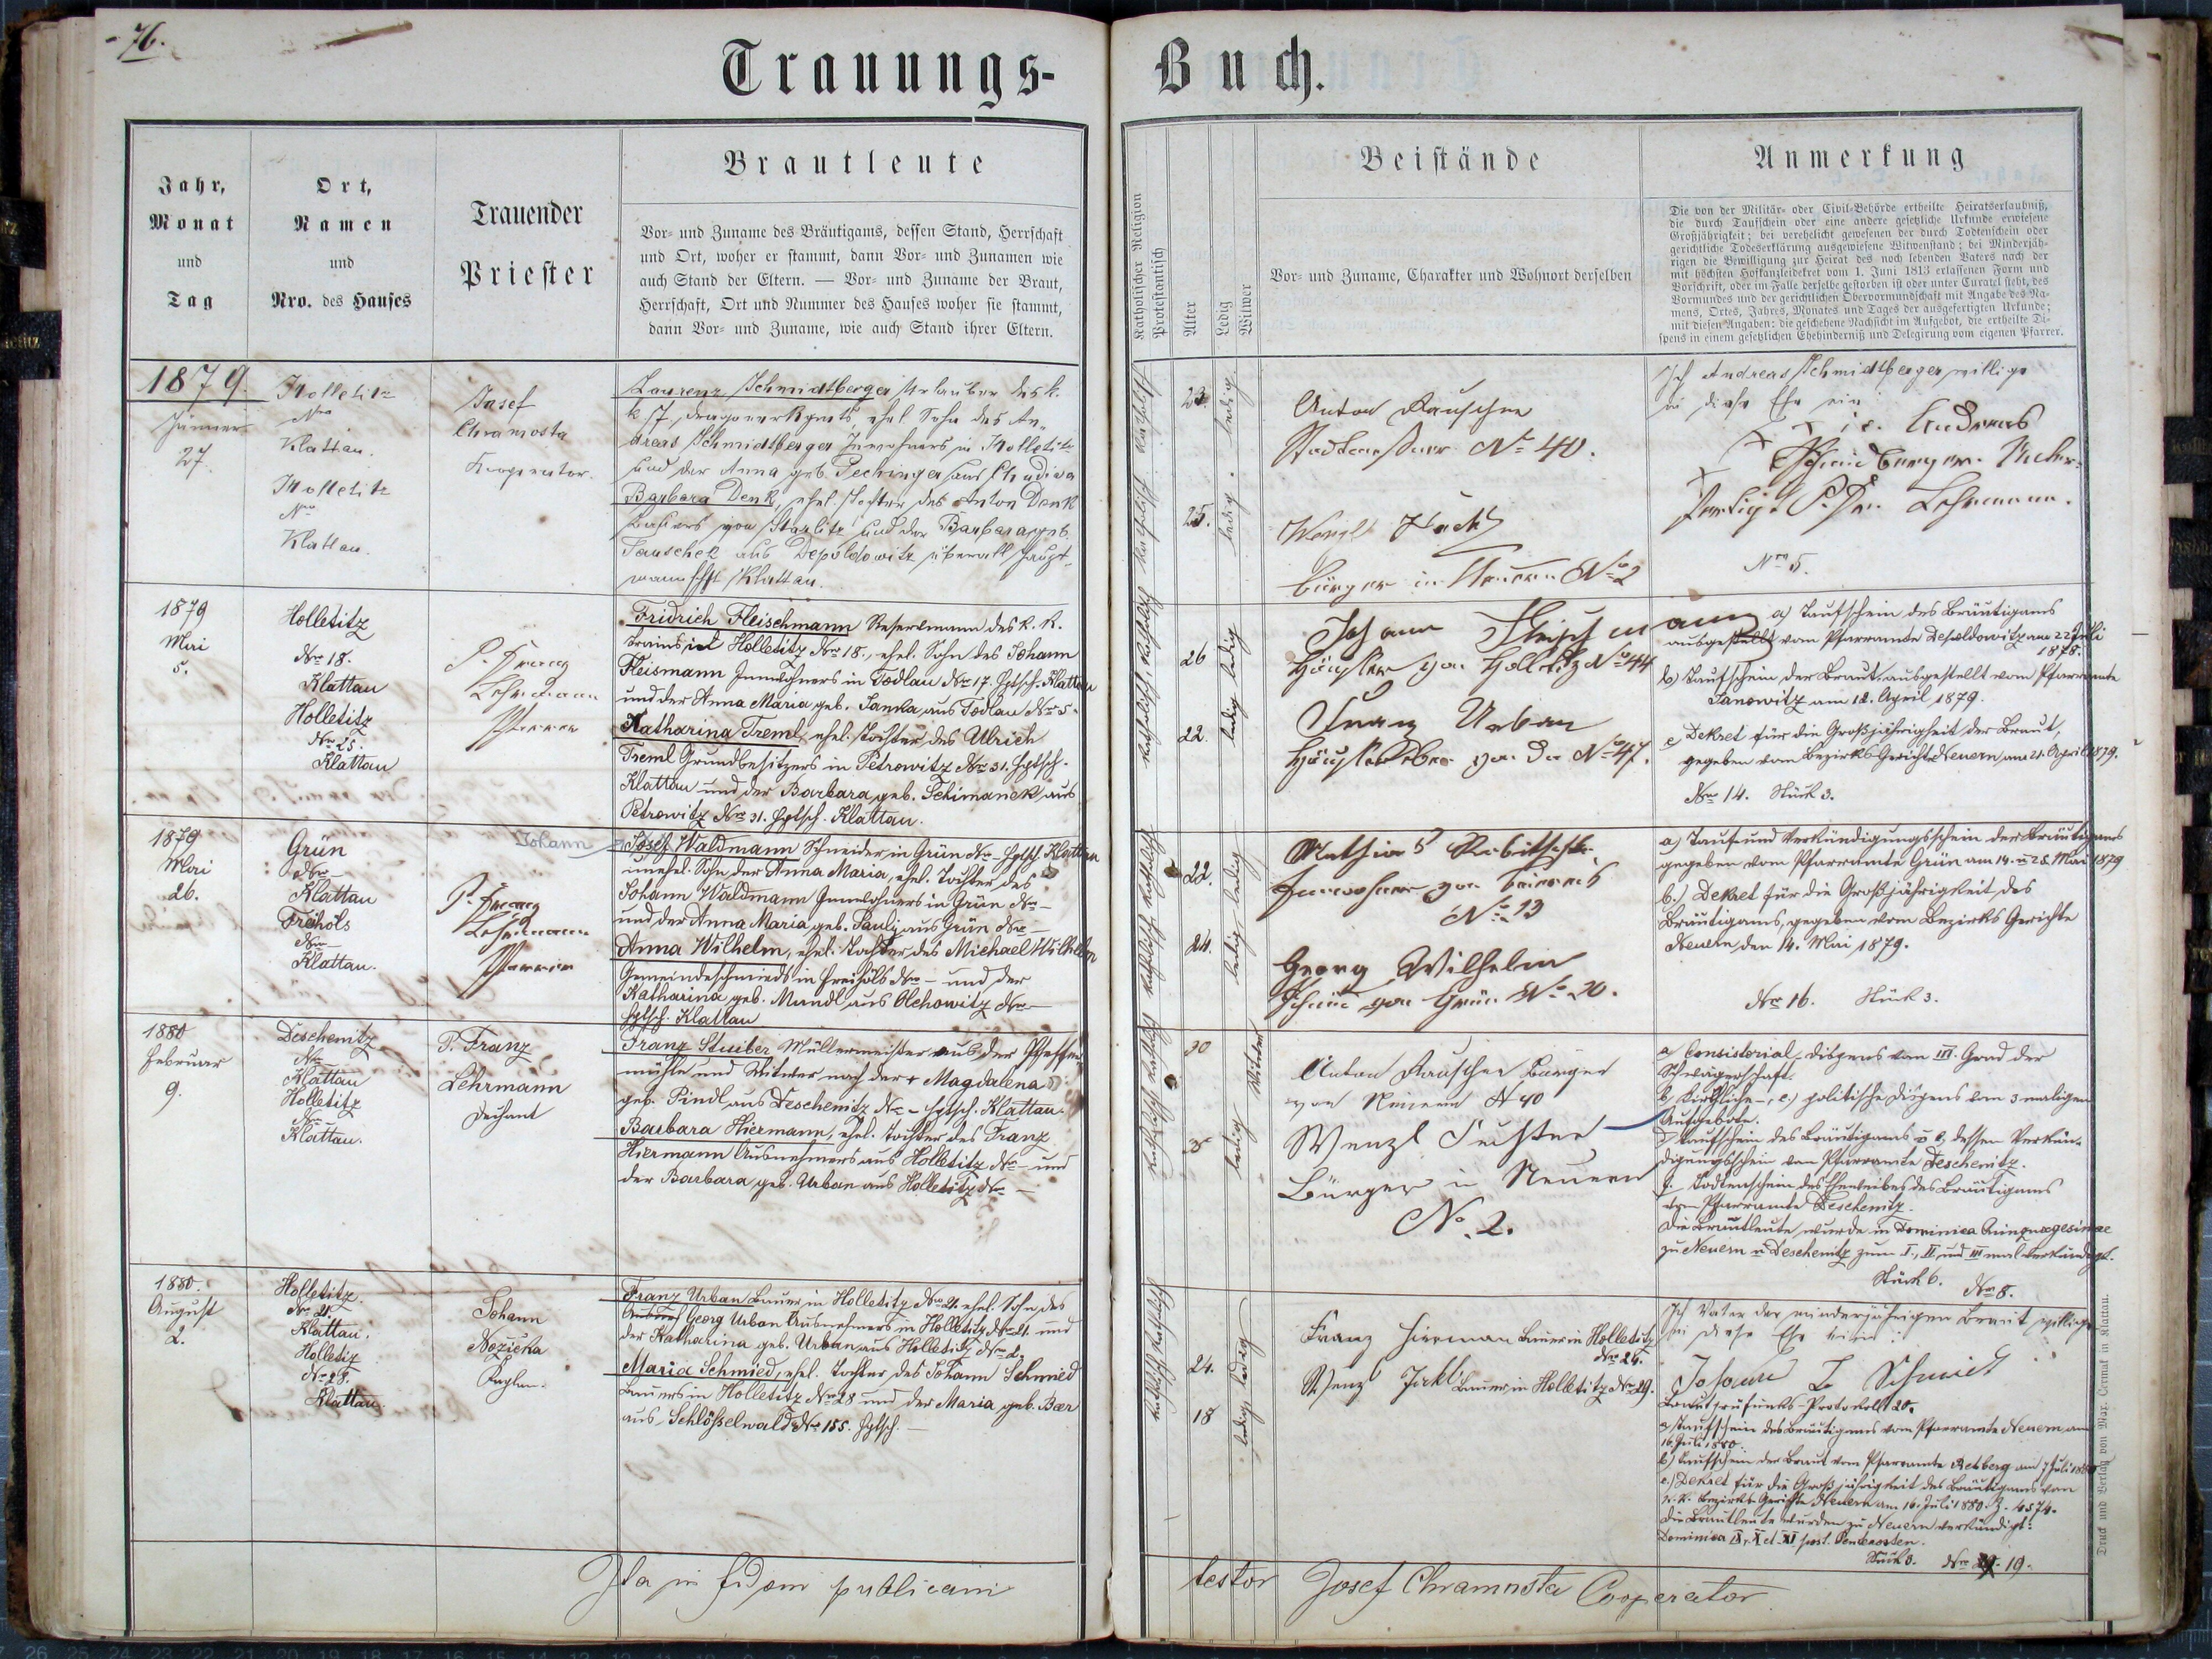 76.
Trauungs-
Buch.
Jahr,
Monat
und
Tag
Ort,
Namen
und
Nro. des Hauses
Trauender
Priester
Brautleute
Vor- und Zuname des Bräutigams, dessen Stand, Herrschaft
und Ort, woher er stammt, dann Vor- und Zunamen wie
auch Stand der Eltern. — Vor- und Zuname der Braut,
Herrschaft, Ort und Nummer des Hauses woher sie stammt,
dann Vor- und Zuname, wie auch Stand ihrer Eltern.
Katholischer Religion
Protestantisch
Alter
Ledig
Witwer
Beistände
Vor- und Zuname, Charakter und Wohnort derselben
Anmerkung
Die von der Militär- oder Civil-Behörde ertheilte Heiratserlaubniß,
die durch Taufschein oder eine andere gesetzliche Urkunde erwiesene
Großjährigkeit; bei verehelicht gewesenen der durch Todtenschein oder
gerichtliche Todeserklärung ausgewiesene Witwenstand; bei Minderjäh-
rigen die Bewilligung zur Heirat des noch lebenden Vaters nach der
mit höchsten Hofkanzleidekret vom 1. Juni 1813 erlassenen Form und
Vorschrift, oder im Falle derselbe gestorben ist oder unter Curatel steht, des
Vormundes und der gerichtlichen Obervormundschaft mit Angabe des Na-
mens, Ortes, Jahres, Monates und Tages der ausgefertigten Urkunde;
mit diesen Angaben: die geschehene Nachsicht im Aufgebot, die ertheilte Di-
spens in einem gesetzlichen Ehehinderniß und Delegirung vom eigenen Pfarrer.
1879.
Jänner
27.
Holletitz
Nro
Klattau.
Holletitz
Nro
Klattau.
Josef
Chramosta
Kooperator.
Laurenz Schmidtberger Urlauber des k.
k. 7. DragonerRgmts, ehel. Sohn des An-
dreas Schmidtberger Inwohners in Holletitz
und der Anna geb. Pechinger aus Chudiwa
Barbara Denk, ehel. Tochter des Anton Denk
von Starlitz und der Barbara geb.
Tauschek aus Depoldowitz überall Haupt-
mannschft Klattau.
23.
ledig
25.
ledig
Anton Rauscher
Nº 40.
Wenzl
Bürger in Neuern Nº 2
Ich Andreas Schmidtberger willige
in diese Ehe ein
+ + + i.e. Andreas
Schmidberger.
Lehrmann.
Nro 5.
1879
Mai
5.
Holletitz
Nro 18.
Klattau
Holletitz
Nro 25.
Klattau
P. Franz
Lehrmann
Pfarrer
Fridrich Fleischmann Reservmann des k. k.
Holletitz Nro 18., ehel. Sohn des Johann
Fleismann Innwohners in Todlau Nro 17. Hptsch. Klattau
und der Anna Maria geb. Janka aus Todlau Nro 5.
Katharina Treml, ehel. Tochter des Ulrich
Treml Grundbesitzers in Petrowitz Nro 31. Hptsch.
Klattau und der Barbara geb. Schimanek aus
Petrowitz Nro 31. Hptsch. Klattau.
26
ledig
22.
ledig
Johann Fleischmann
Häusler von Holletitz Nº 44
Franz Urban
Häusler von Do Nº 47.
a) Taufschein des Bräutigams
ausgestellt vom Pfarramte Depoldowitz am 22 Juli
1878.
b) Taufschein der Braut, ausgestellt vom Pfarramte
Janowitz am 12. April 1879.
c) Dekret für die Großjährigkeit der Braut,
gegeben vom Bezirks Gerichte Neuern am 21. April 1879.
Nro 14. Stück 3.
1879
Mai
26.
Grün
Nro —
Klattau
Freihöls
Nro —
Klattau.
P. Franz
Lehrmann
Pfarrer
Johann
Josef Waldmann Schneider in Grün Nro - Hptsch. Klattau
unehel. Sohn der Anna Maria, ehel. Tochter des
Johann Waldmann Innwohners in Grün Nro —
und der Anna Maria geb. Pauly aus Grün Nro —
Anna Wilhelm, ehel. Tochter des Michael Wilhelm
Gemeindeschmieds in Freihöls Nro — und der
Katharina geb. Mandl aus Olchowitz Nro —
Hptsch. Klattau
22.
ledig
24.
ledig
Mathias Rabitschke
Inwohner von
Nº 13
Georg Wilhelm
Schmied von Grün Nº 20.
a) Tauf- und Verkündigungsschein des Bräutigams
gegeben vom Pfarramte Grün am 14. u 25. Mai 1879
b.) Dekret für die Großjährigkeit des
Bräutigams, gegeben vom Bezirks Gerichte
Neuern den 14. Mai 1879.
Nro 16. Stück 3.
1880
Februar
9.
Deschenitz
Nro —
Klattau
Holletitz
Nro —
Klattau.
P. Franz
Lehrmann
Dechant
Franz Stuiber Müllermeister aus der Pfeffer-
mühle und Witwer nach der + Magdalena
geb. Pindl aus Deschenitz Nro - Hptsch. Klattau.
Barbara Hiermann, ehel. Tochter des Franz
Hiermann Ausnehmers aus Holletitz Nro — und
der Barbara geb. Urban aus Holletitz Nro —
30
Witwer
ledig
Anton Rauscher Bürger
von Neuern N 40
Wenzl
Bürger in Neuern
No. 2.
a) Consistorial-Dispens vom III. Grad der
Schwägerschaft.
b) Kirchliche-, c.) politische Dispens vom 3 maligen
Aufgebote.
d) Taufschein des Bräutigams u e) dessen Verkün-
digungsschein vom Pfarramte Deschenitz.
f. Todtenschein des Eheweibes des Bräutigams
vom Pfarramte Deschenitz.
Die Brautleute wurde in Dominica Quinquagesimae
zu Neuern u Deschenitz zum I., II und III mal verkündigt.
Stück 6. Nro 8.
1880.
August
2.
Holletitz.
Nro 21.
Klattau.
Holletitz
Nro 28.
Klattau.
Johann
Nozička
Kaplan.
Franz Urban Bauer in Holletitz Nro 21. ehel. Sohn des
Georg Urban Ausnehmers in Holletitz Nro 21. und
der Katharina geb. Urban aus Holletitz Nro 2.
Maria Schmied, ehel. Tochter des Johann Schmied
Bauers in Holletitz Nro 28 und der Maria geb. Baer
aus Schlösselwald Nro 155. Hptsch. —
24.
ledig
18
ledig
Franz Hierman Bauer in Holletitz
Nro 24.
Wenz Jakl Bauer in Holletitz Nro 29.
Ich Vater der minderjährigen Braut willige
in diese Ehe ein:
Johann Schmied
Protokoll 20.
a) Taufschein des Bräutigams vom Pfarramte Neuern am
16. Juli 1880.
b) Taufschein der Braut vom Pfarramte Rehberg am 7 Juli 1880
c.) Dekret für die Großjährigkeit des Bräutigams vom
k. k. Bezirks-Gerichte Neuern am 16. Juli 1880. Z. 4574.
Die Brautleute wurden zu Neuern verkündigt:
Dominica IX, X et XI post. Pentecosten.
Stück 3. Nro 19.
Ita in fidem publicam
testor Josef Chramosta Cooperator
Druck und Verlag von Max. Čermak in Klattau.